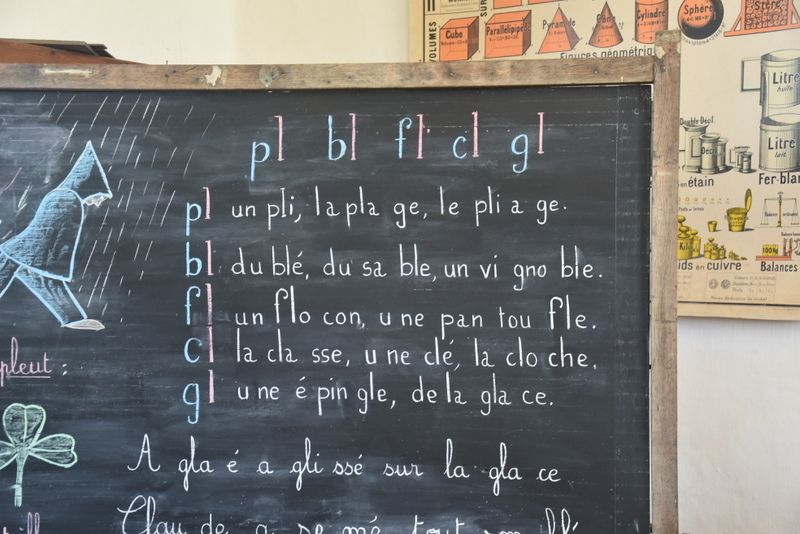 VOLUMES
Cube
Parallélipip
Pyramide
Cylindre
Sphère
Figures géométriq
Litre
huile
Double Décil.
Litre
lait
en étain
Fer-blan
ds en cuivre
Balances
100Kg
pl bl fl cl gl
pl un pli, la pla ge, le pli a ge.
bl du blé, du sa ble, un vi gno ble.
fl un flo con, u ne pan tou fle.
cl la cla sse, u ne clé, la clo che.
gl u ne é pin gle, de la gla ce.
pleut :
A gla é a gli ssé sur la gla ce
Clau de a se mé tout